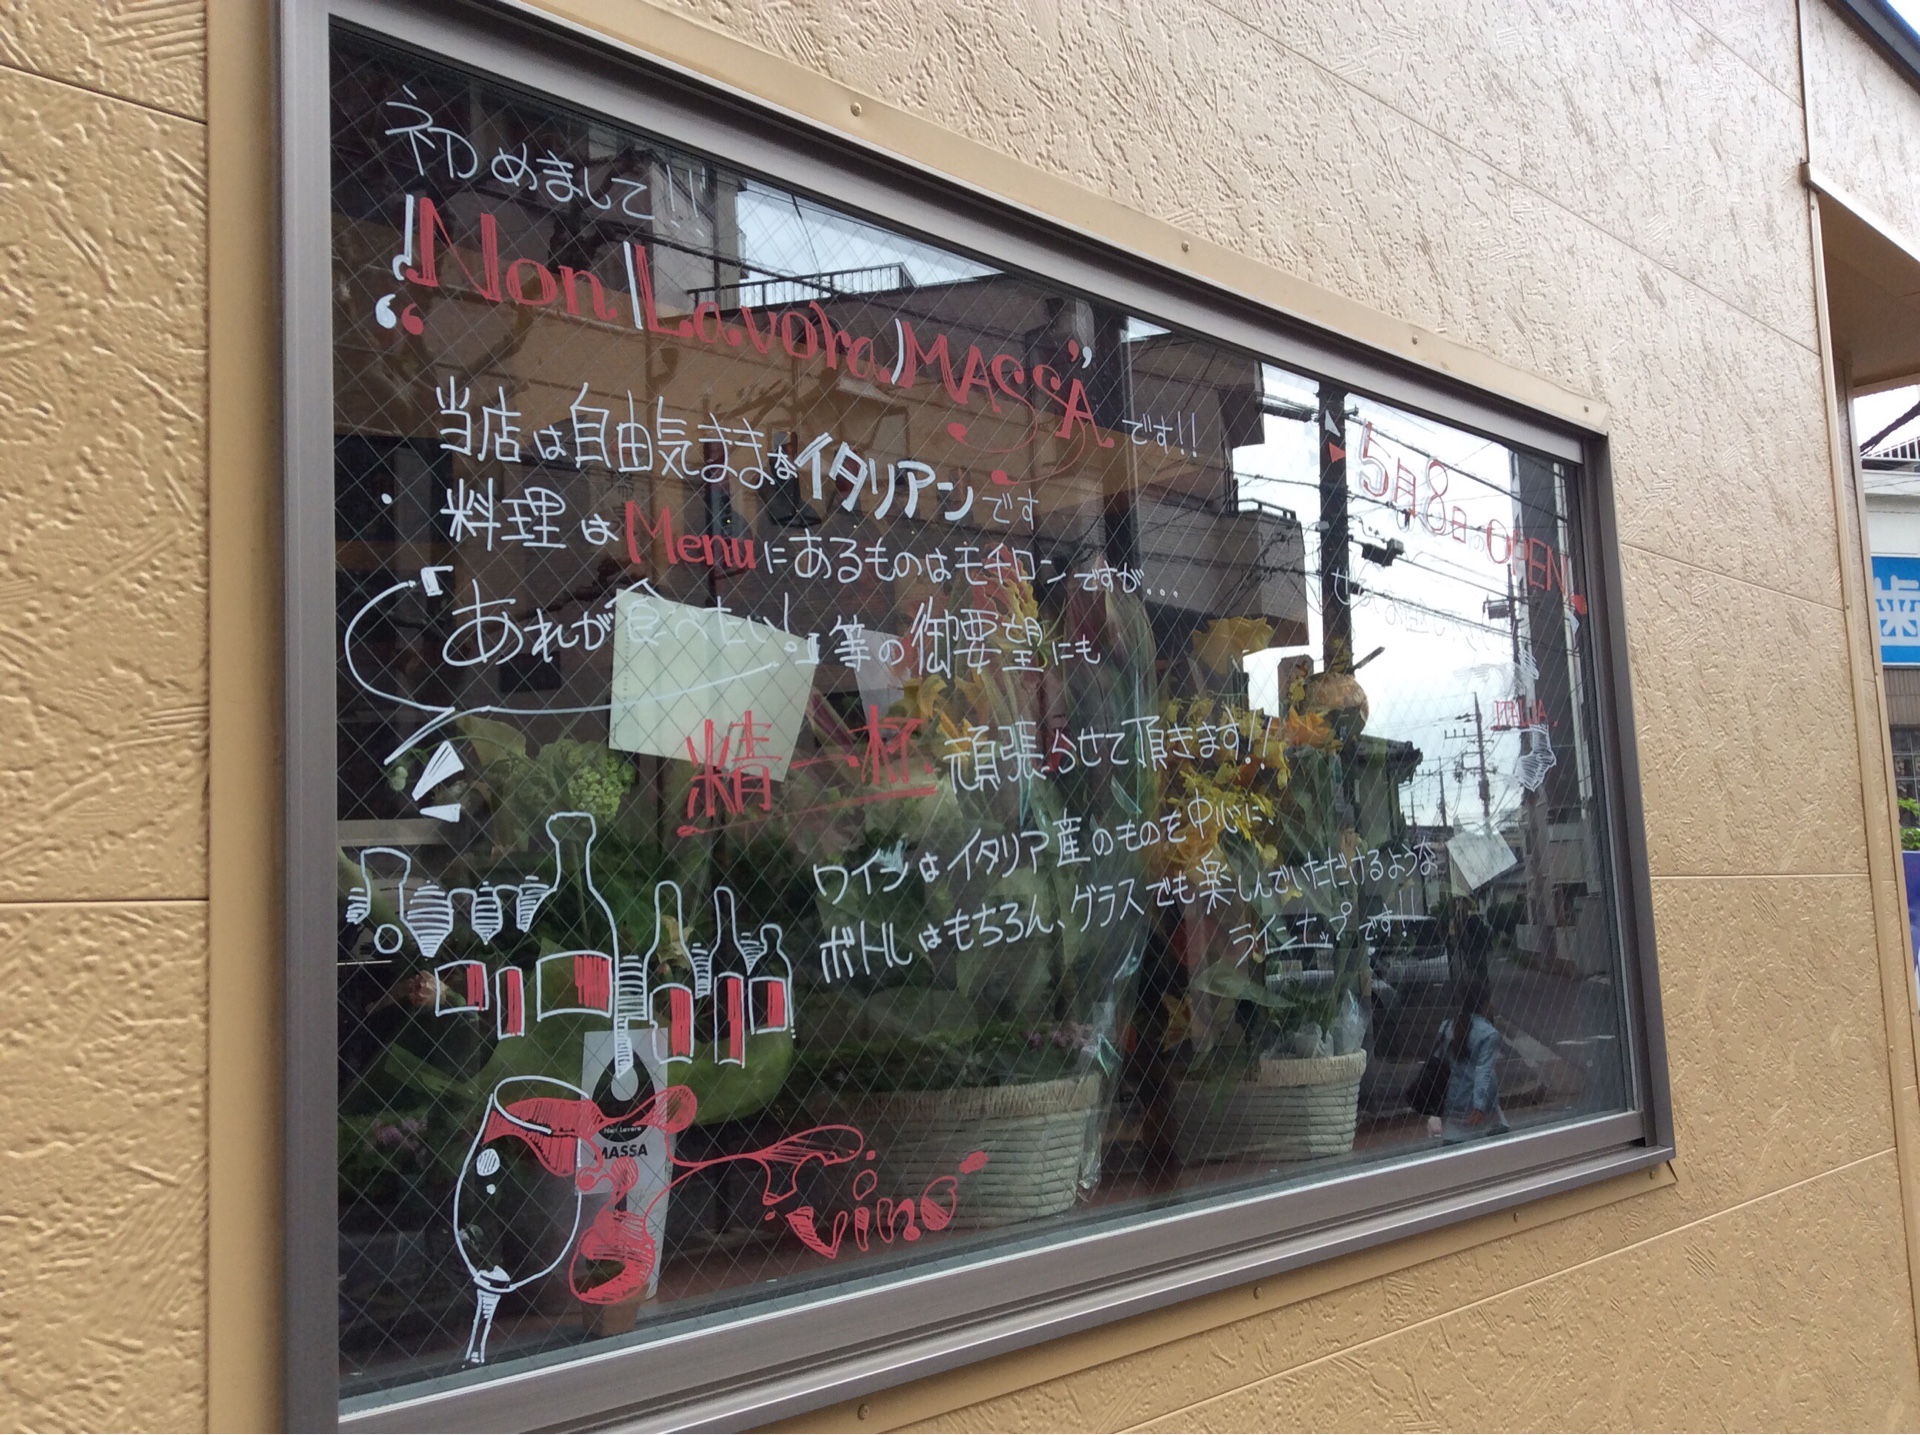 初めまして!!
"Non Lavora MASSA"です!!
当店は自由気ままなイタリアンです
料理はMenuにあるものはモチロンですが...
「あれが食べたい!」等の御要望にも
精一杯 頑張らせて頂きます!!
ワインはイタリア産のものを中心に、
ボトルはもちろん、グラスでも楽しんでいただけるような
ラインナップです!!
5月8日 OPEN!
ITALIA
Non Lavora
MASSA
vino
歯